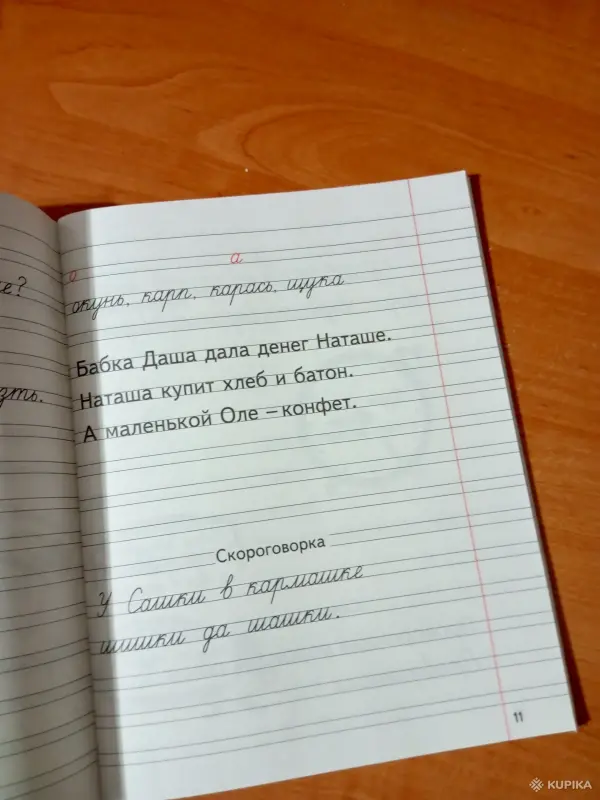 е?
зть.
о а
окунь, карп, карась, щука
Бабка Даша дала денег Наташе.
Наташа купит хлеб и батон.
А маленькой Оле – конфет.
Скороговорка
У Сашки в кармашке
шишки да шашки.
11
KUPIKA